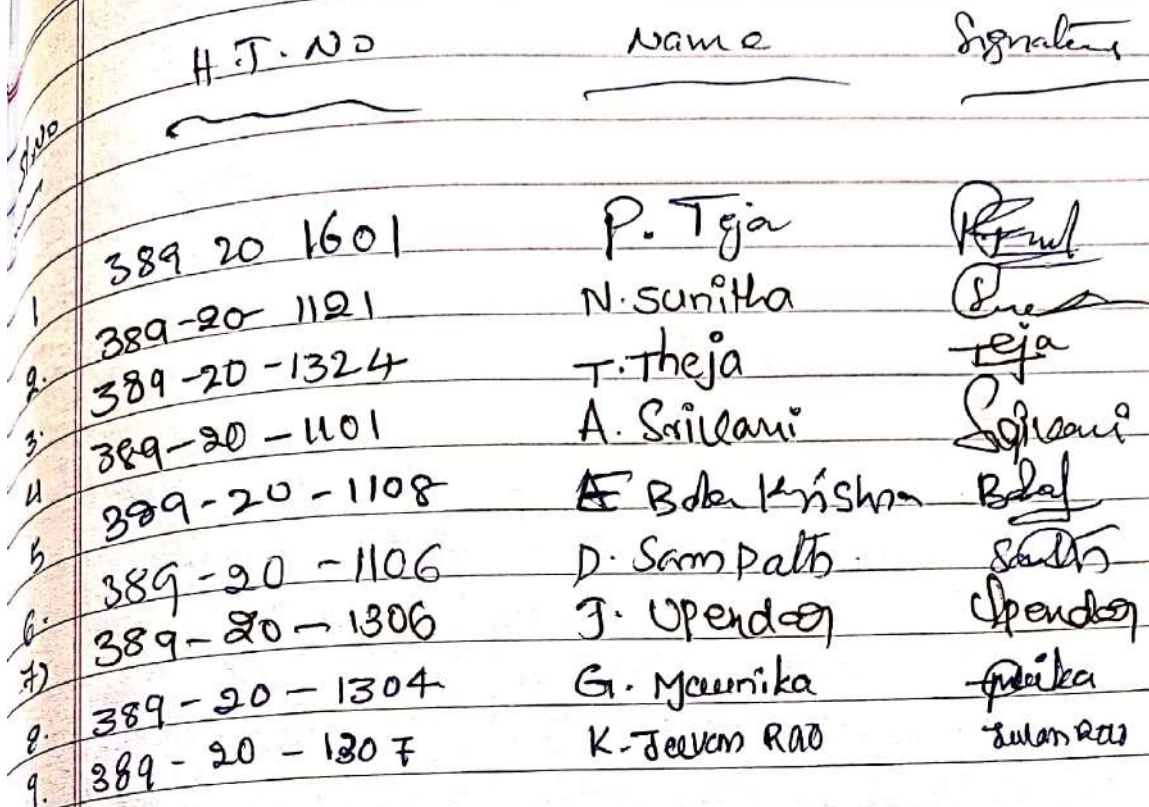 Sl.No H.T.NO Name Signature
1 389 20 1601 P. Teja
2. 389-20-1121 N. Sunitha
3. 389-20-1324 T. Theja Teja
4 389-20-1101 A. Srivani Srivani
5 389-20-1108 Bala Krishna
6. 389-20-1106 D. Sampath
7) 389-20-1306 J. Upender Upender
8. 389-20-1304 G. Mounika
9. 389-20-1307 K. Jeevan Rao